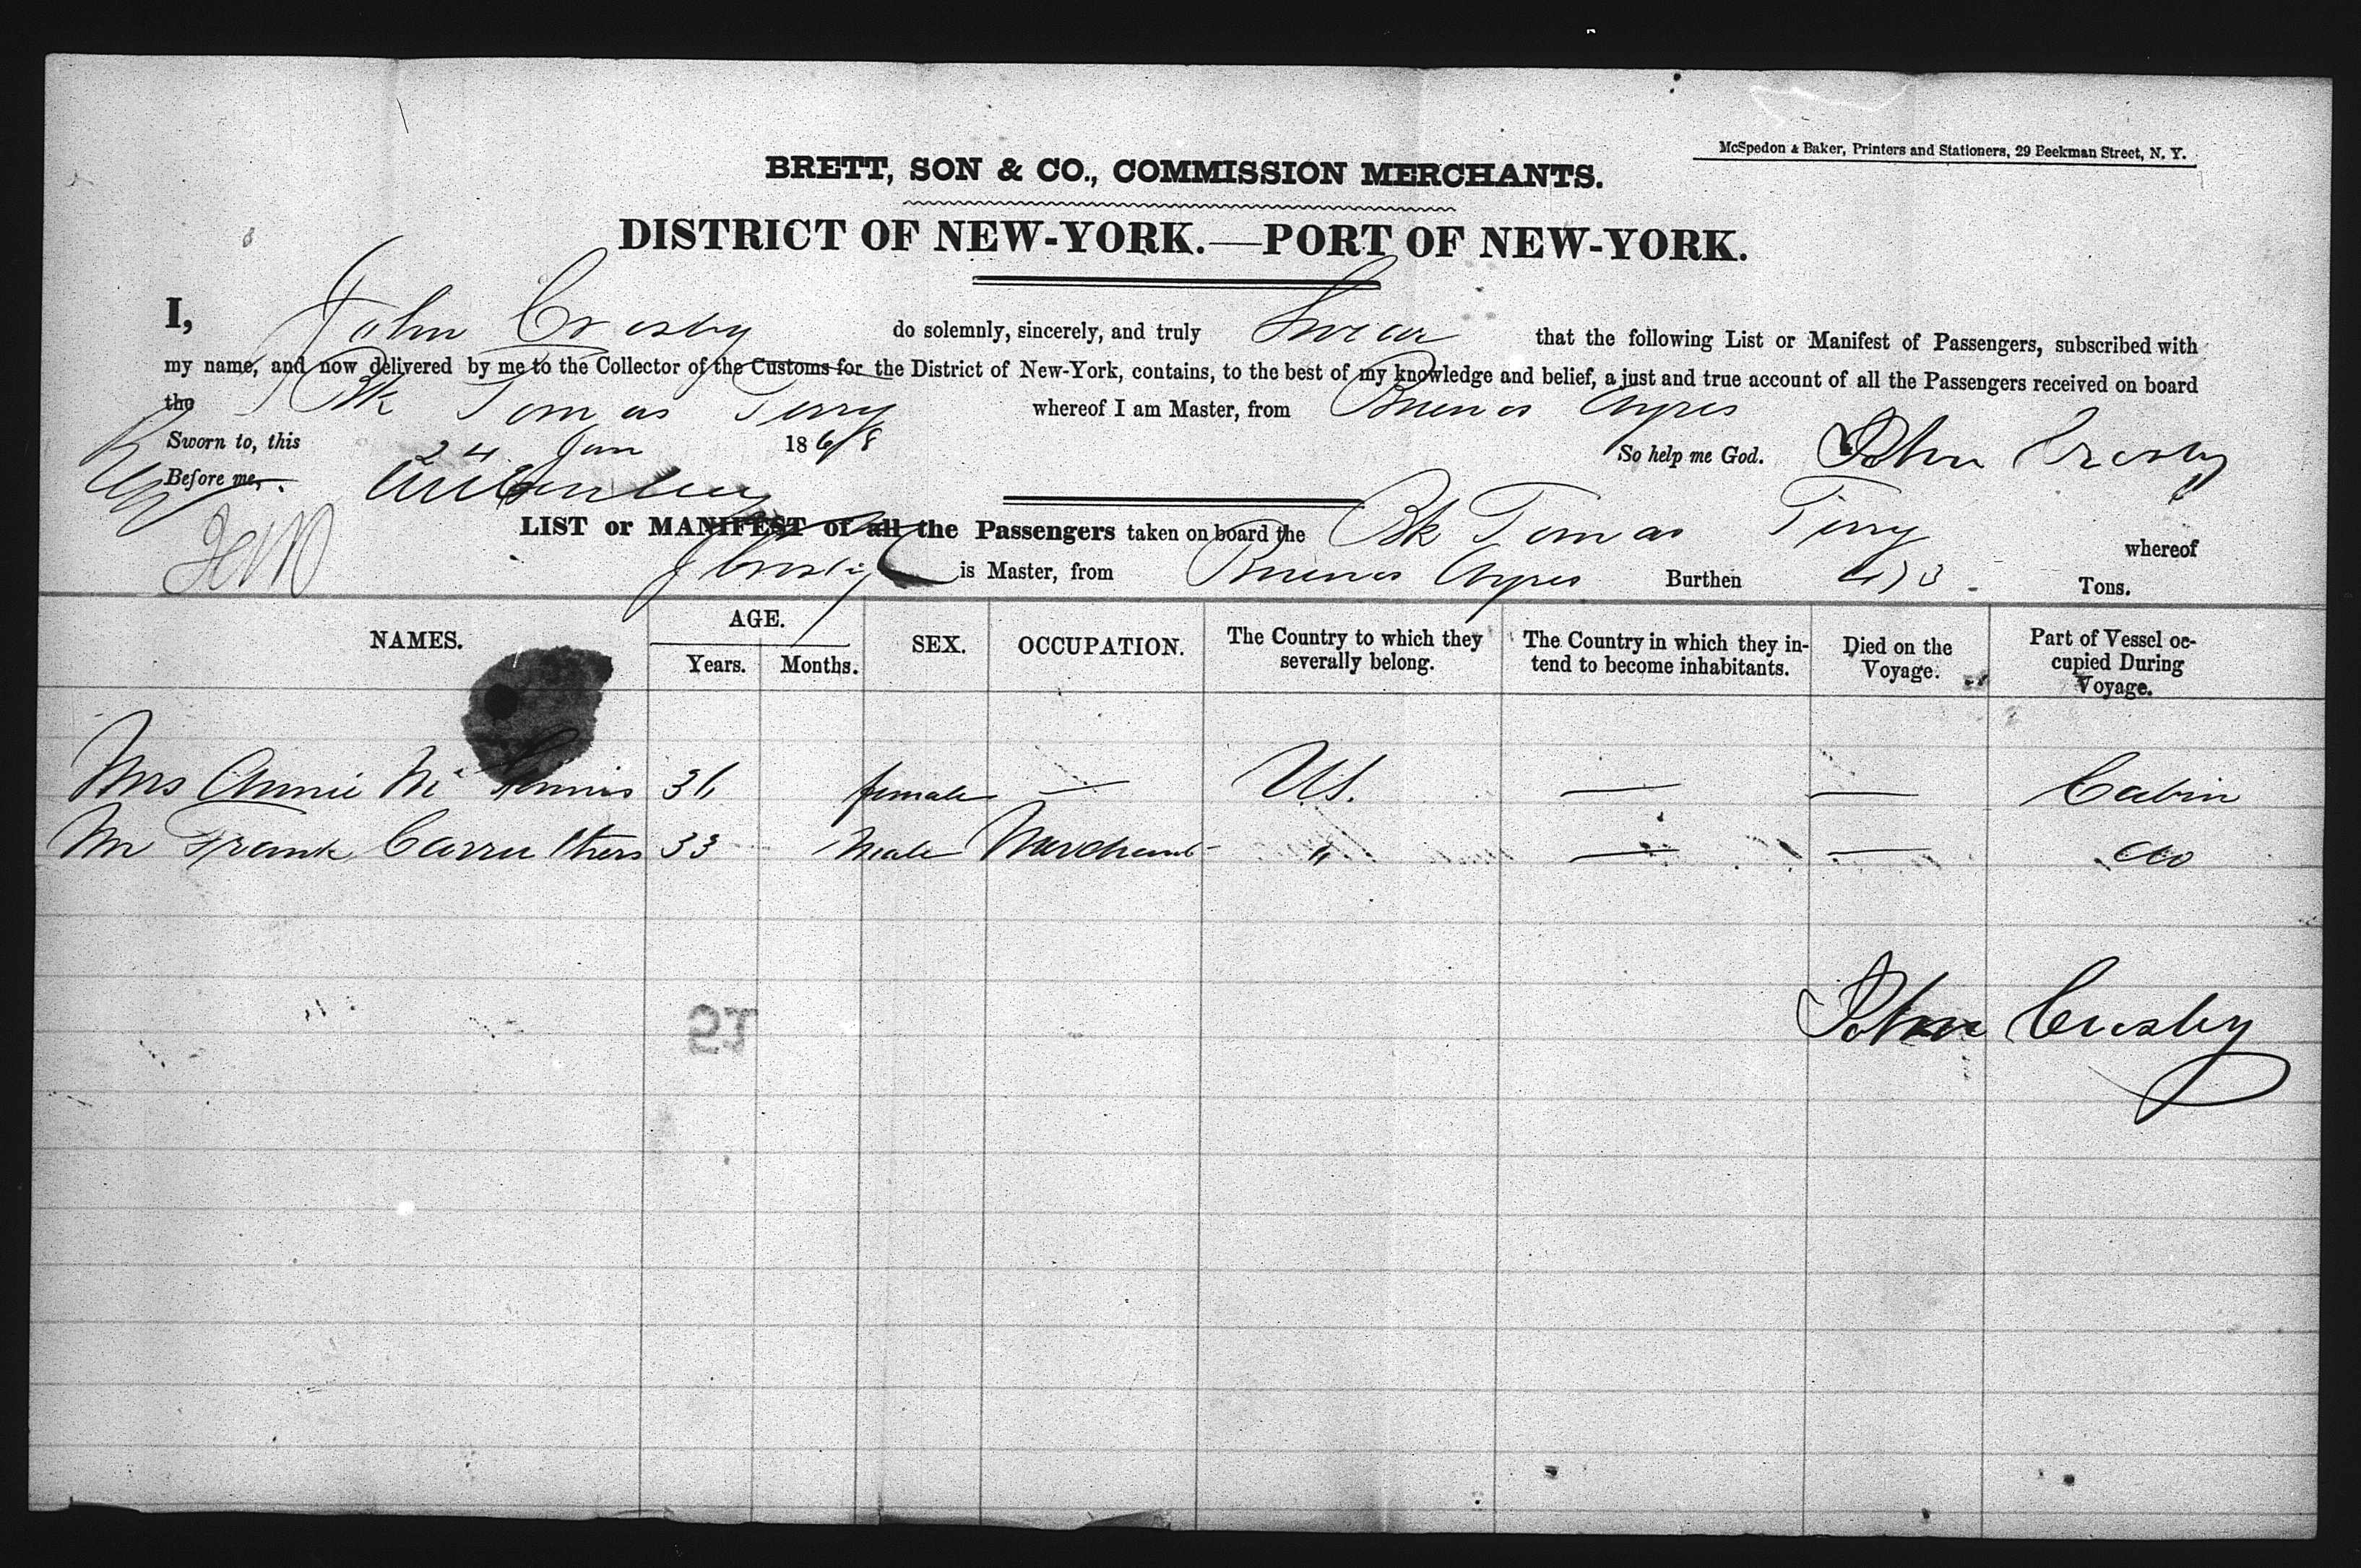 McSpedon & Baker, Printers and Stationers, 29 Beekman Street, N. Y.
BRETT, SON & CO., COMMISSION MERCHANTS.
DISTRICT OF NEW-YORK.—PORT OF NEW-YORK.
I, John Crosby do solemnly, sincerely, and truly Swear that the following List or Manifest of Passengers, subscribed with
my name, and now delivered by me to the Collector of the Customs for the District of New-York, contains, to the best of my knowledge and belief, a just and true account of all the Passengers received on board
the Bk Tomas Terry whereof I am Master, from Buenos Ayres
Sworn to, this 24 Jan 1868 So help me God. John Crosby
Before me,
LIST or MANIFEST of all the Passengers taken on board the Bk Tomas Terry whereof
J Crosby is Master, from Buenos Ayres Burthen 473 Tons.
NAMES. AGE. Years. Months. SEX. OCCUPATION. The Country to which they severally belong. The Country in which they intend to become inhabitants. Died on the Voyage. Part of Vessel occupied During Voyage.
Mrs Annie Mc 36 female — US. — — Cabin
Mr Frank Carruthers 33 Male Merchant " — — do
John Crosby
51